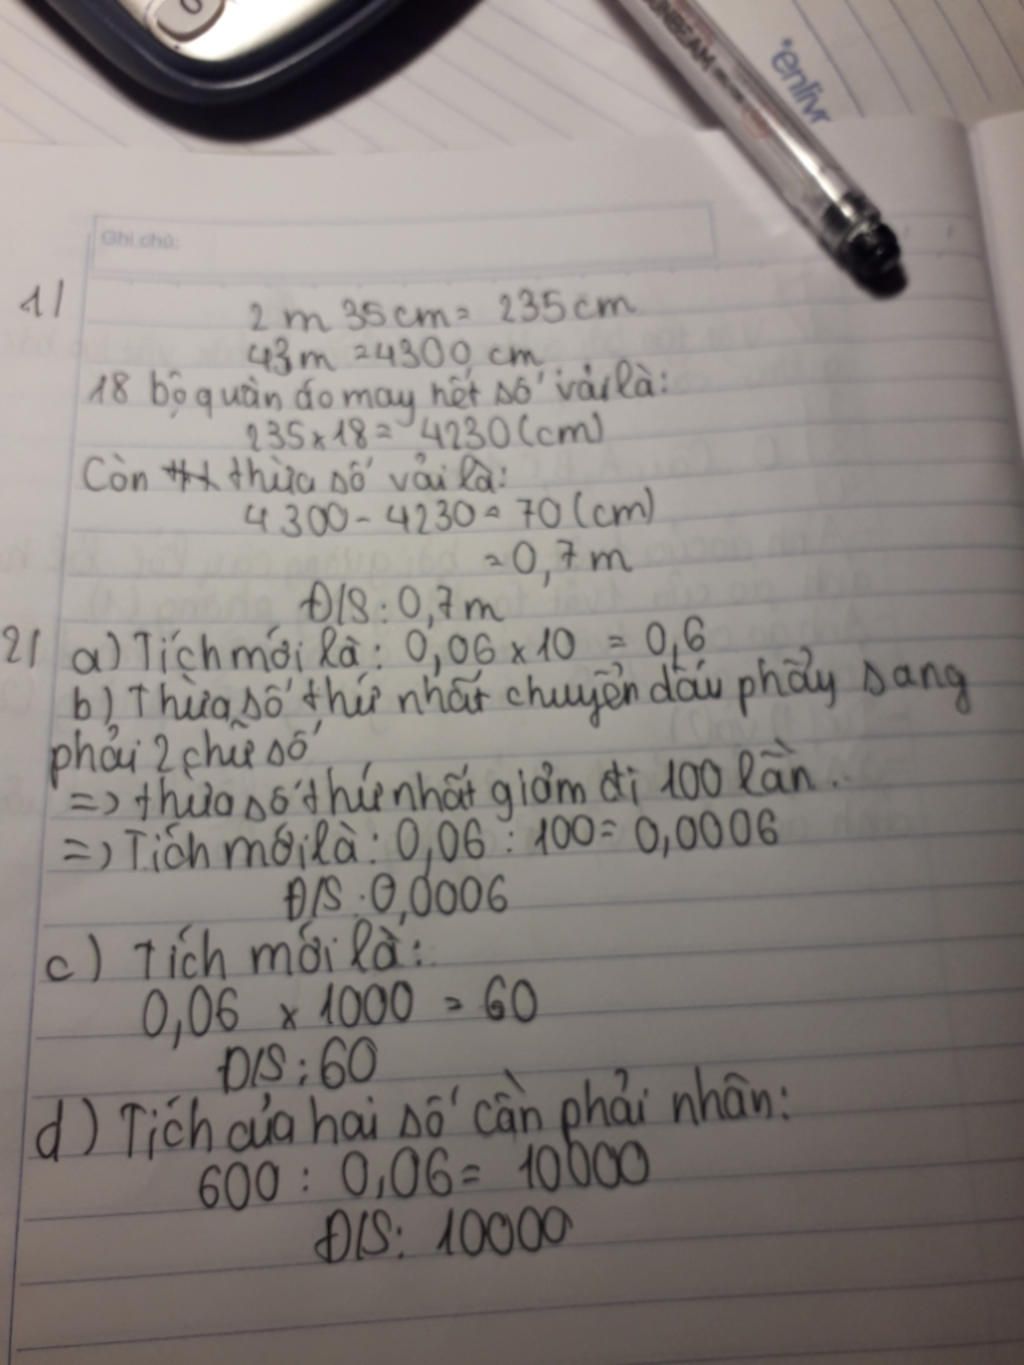 SUNBEAM
*enlivr
Ghi chú:
1/
2 m 35 cm = 235 cm
43m = 4300 cm
18 bộ quần áo may hết số vải là:
235 x 18 = 4230 (cm)
Còn thừa số vải là:
4300 - 4230 = 70 (cm)
= 0,7 m
Đ/S: 0,7 m
2/ a) Tích mới là: 0,06 x 10 = 0,6
b) Thừa số thứ nhất chuyển dấu phẩy sang
phải 2 chữ số
=> thừa số thứ nhất giảm đi 100 lần.
=> Tích mới là: 0,06 : 100 = 0,0006
Đ/S: 0,0006
c) Tích mới là:
0,06 x 1000 = 60
Đ/S: 60
d) Tích của hai số cần phải nhân:
600 : 0,06 = 10000
Đ/S: 10000